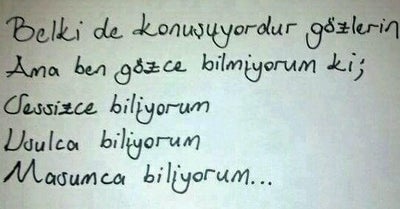 Belki de konuşuyordur gözlerin
Ama ben gözce bilmiyorum ki;
Sessizce biliyorum
Usulca biliyorum
Masumca biliyorum...